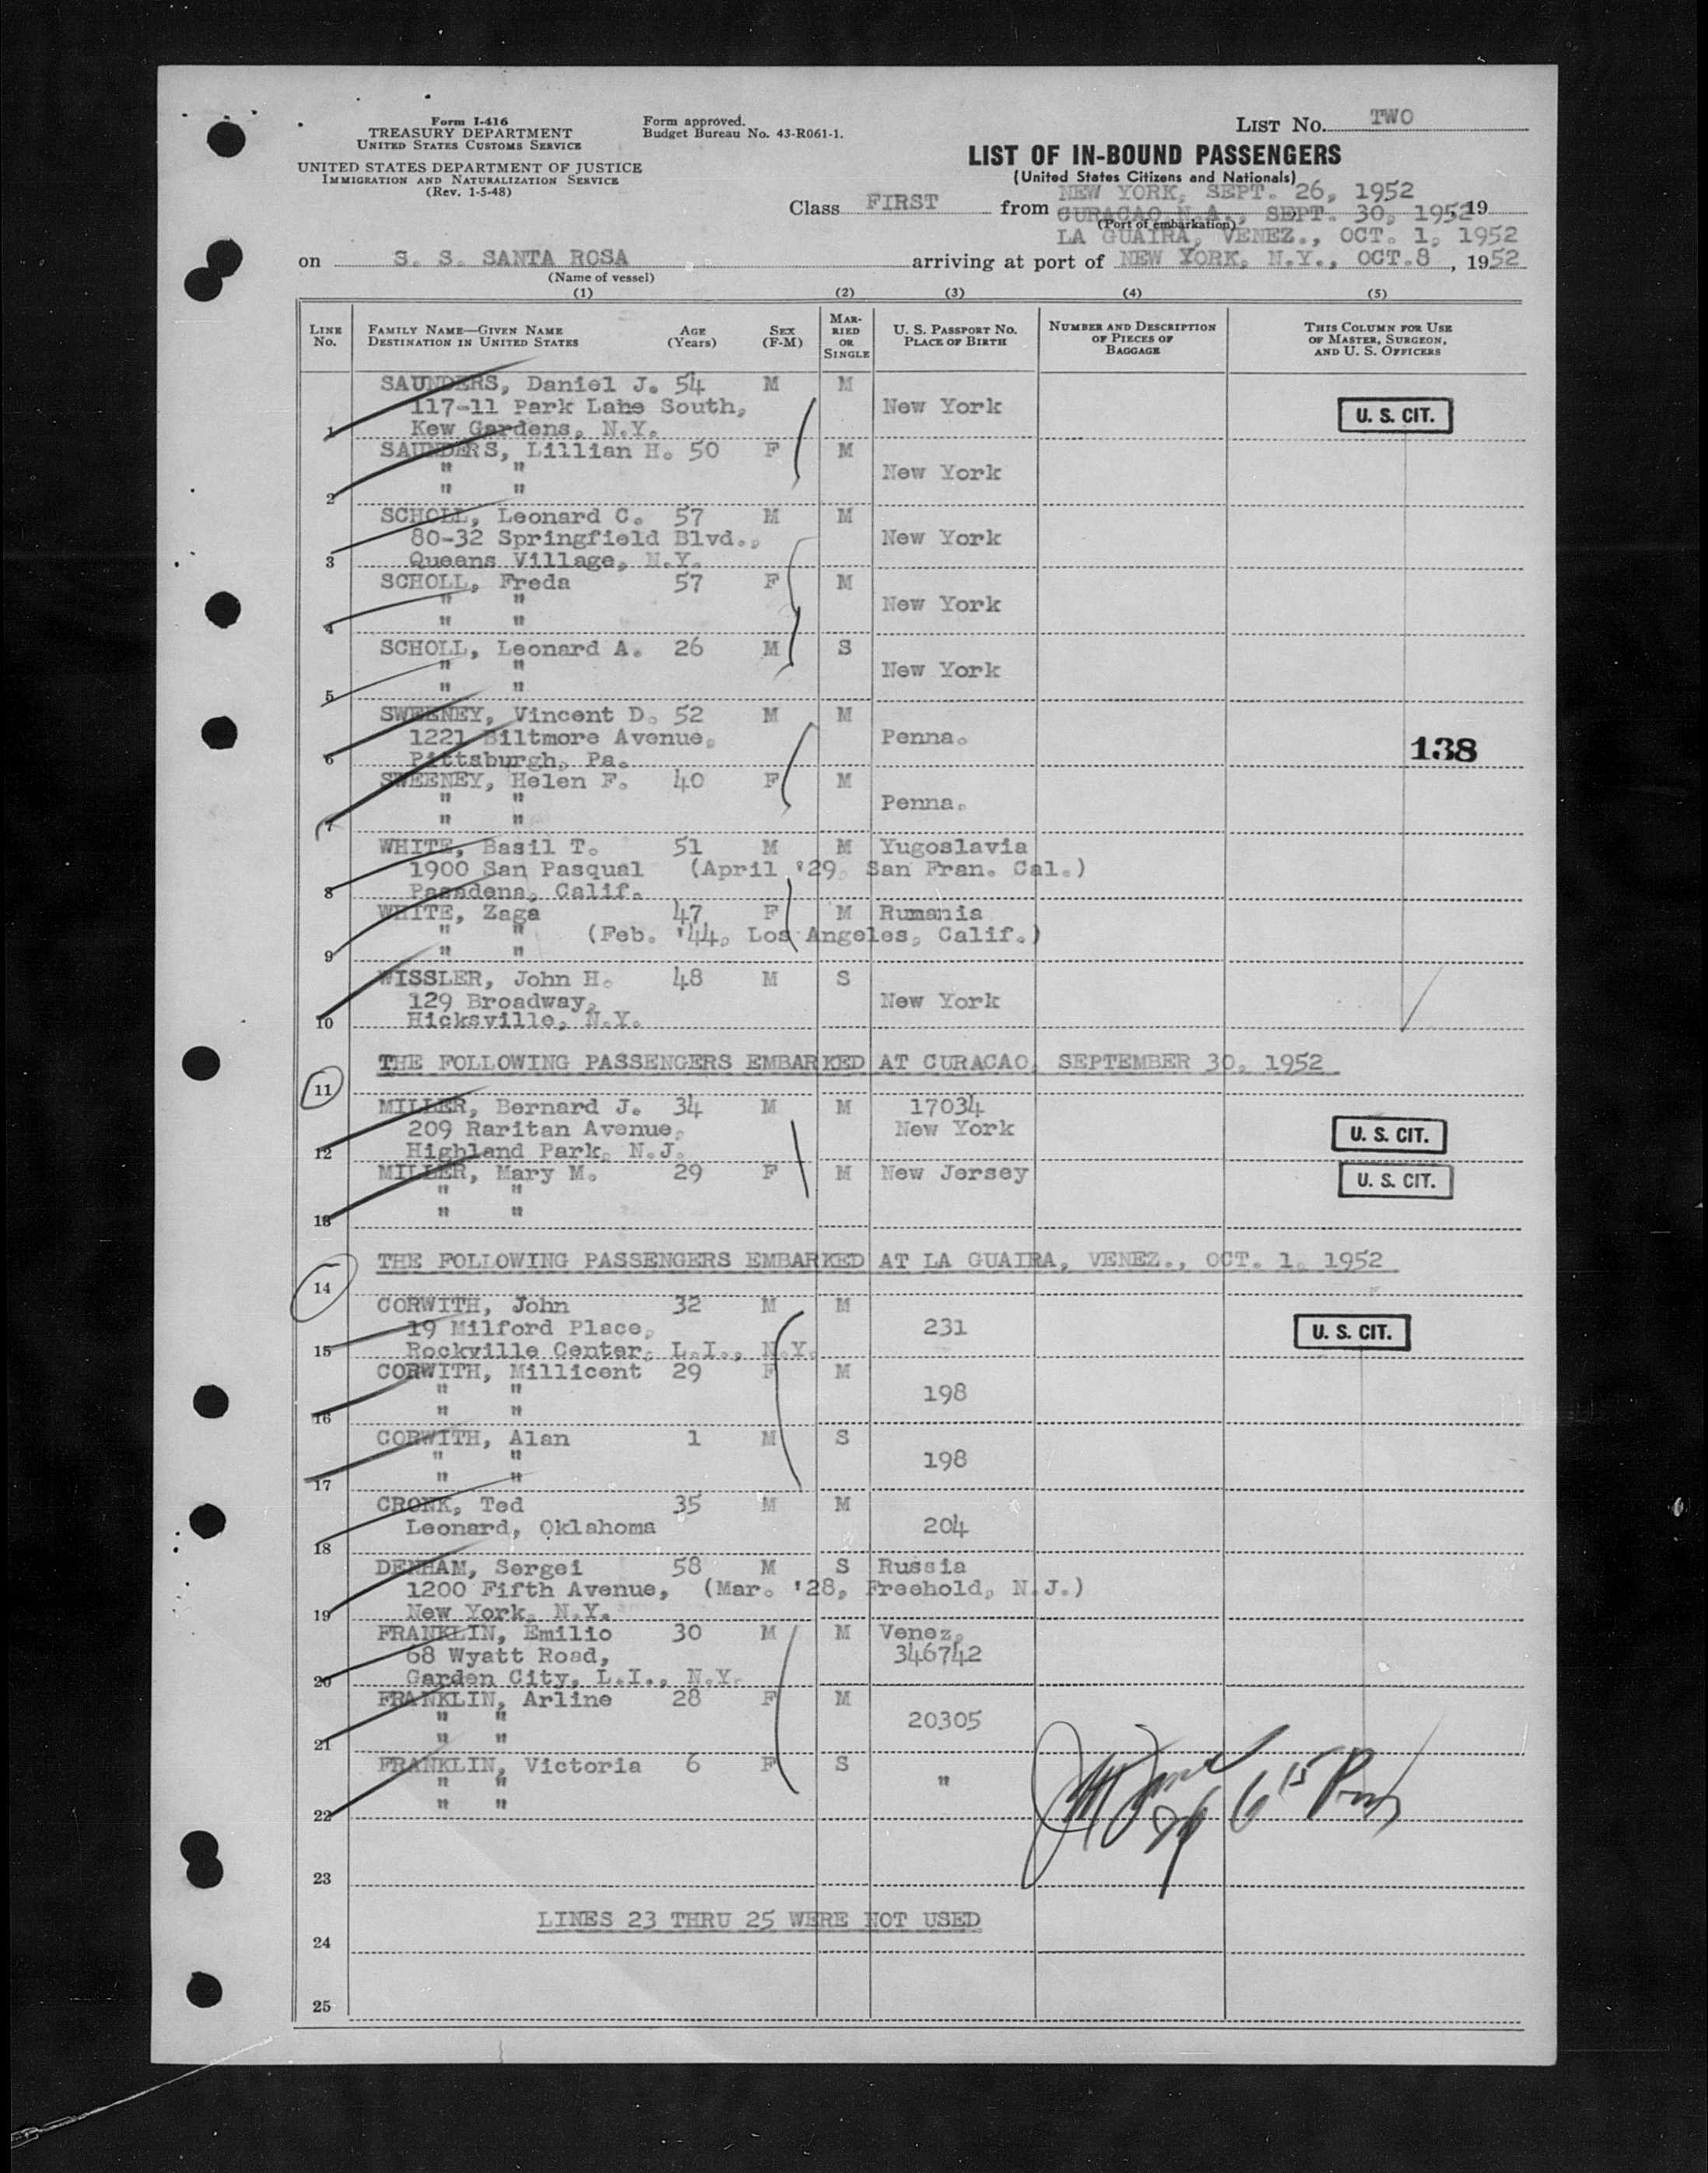 Form I-416
TREASURY DEPARTMENT
UNITED STATES CUSTOMS SERVICE
UNITED STATES DEPARTMENT OF JUSTICE
IMMIGRATION AND NATURALIZATION SERVICE
(Rev. 1-5-48)
Form approved.
Budget Bureau No. 43-R061-1.
LIST No. TWO
LIST OF IN-BOUND PASSENGERS
(United States Citizens and Nationals)
NEW YORK, SEPT. 26, 1952
Class FIRST from CURACAO N.A., SEPT. 30, 1952 19
(Port of embarkation)
LA GUAIRA, VENEZ., OCT. 1, 1952
on S. S. SANTA ROSA arriving at port of NEW YORK, N.Y., OCT.8, 1952
(Name of vessel)
(1) (2) (3) (4) (5)
LINE No. FAMILY NAME—GIVEN NAME DESTINATION IN UNITED STATES AGE (Years) SEX (F-M) MARRIED OR SINGLE U. S. PASSPORT No. PLACE OF BIRTH NUMBER AND DESCRIPTION OF PIECES OF BAGGAGE THIS COLUMN FOR USE OF MASTER, SURGEON, AND U. S. OFFICERS
SAUNDERS, Daniel J. 54 M M
117-11 Park Lane South, New York U. S. CIT.
1 Kew Gardens, N.Y.
SAUNDERS, Lillian H. 50 F M
" " New York
2 " "
SCHOLL, Leonard C. 57 M M
80-32 Springfield Blvd., New York
3 Queens Village, N.Y.
SCHOLL, Freda 57 F M
" " New York
4 " "
SCHOLL, Leonard A. 26 M S
" " New York
5 " "
SWEENEY, Vincent D. 52 M M
1221 Biltmore Avenue, Penna. 138
6 Pittsburgh, Pa.
SWEENEY, Helen F. 40 F M
" " Penna.
7 " "
WHITE, Basil T. 51 M M Yugoslavia
1900 San Pasqual (April '29, San Fran. Cal.)
8 Pasadena, Calif.
WHITE, Zaga 47 F M Rumania
" " (Feb. '44, Los Angeles, Calif.)
9 " "
WISSLER, John H. 48 M S
129 Broadway, New York
10 Hicksville, N.Y.
THE FOLLOWING PASSENGERS EMBARKED AT CURACAO, SEPTEMBER 30, 1952
11
MILLER, Bernard J. 34 M M 17034
209 Raritan Avenue, New York U. S. CIT.
12 Highland Park, N.J.
MILLER, Mary M. 29 F M New Jersey U. S. CIT.
" "
13 " "
THE FOLLOWING PASSENGERS EMBARKED AT LA GUAIRA, VENEZ., OCT. 1, 1952
14
CORWITH, John 32 M M
19 Milford Place, 231 U. S. CIT.
15 Rockville Center, L.I., N.Y.
CORWITH, Millicent 29 F M
" " 198
16 " "
CORWITH, Alan 1 M S
" " 198
17 " "
CRONK, Ted 35 M M
Leonard, Oklahoma 204
18
DENHAM, Sergei 58 M S Russia
1200 Fifth Avenue, (Mar. '28, Freehold, N.J.)
19 New York, N.Y.
FRANKLIN, Emilio 30 M M Venez.
68 Wyatt Road, 346742
20 Garden City, L.I., N.Y.
FRANKLIN, Arline 28 F M
" " 20305
21 " "
FRANKLIN, Victoria 6 F S
" " "
22 " "
23
LINES 23 THRU 25 WERE NOT USED
24
25